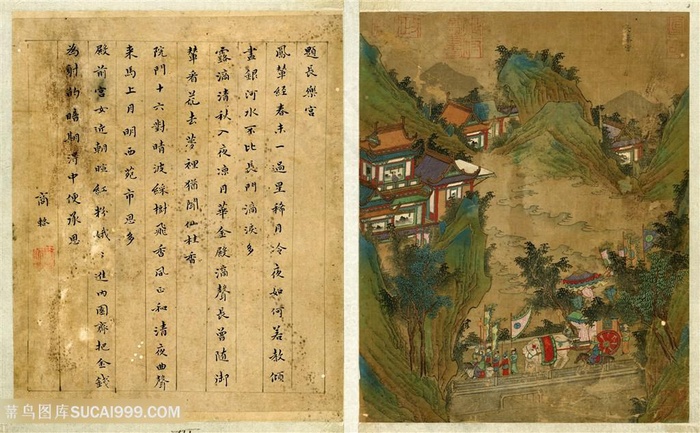 題長樂宮
鳳輦經春未一過星稀月冷夜如何若教傾
盡銀河水不比長門滴淚多
露滴清秋入夜凉月華金殿漏聲長曾隨御
輦看花去夢裡猶聞仙杜香
院門十六對晴波綵樹飛香風日和清夜曲聲
來馬上月明西苑市恩多
殿前宮女近朝暄紅粉娥〻進內園齊把金錢
為射的暗期得中便承恩
商
菜鸟图库SUCAI999.COM